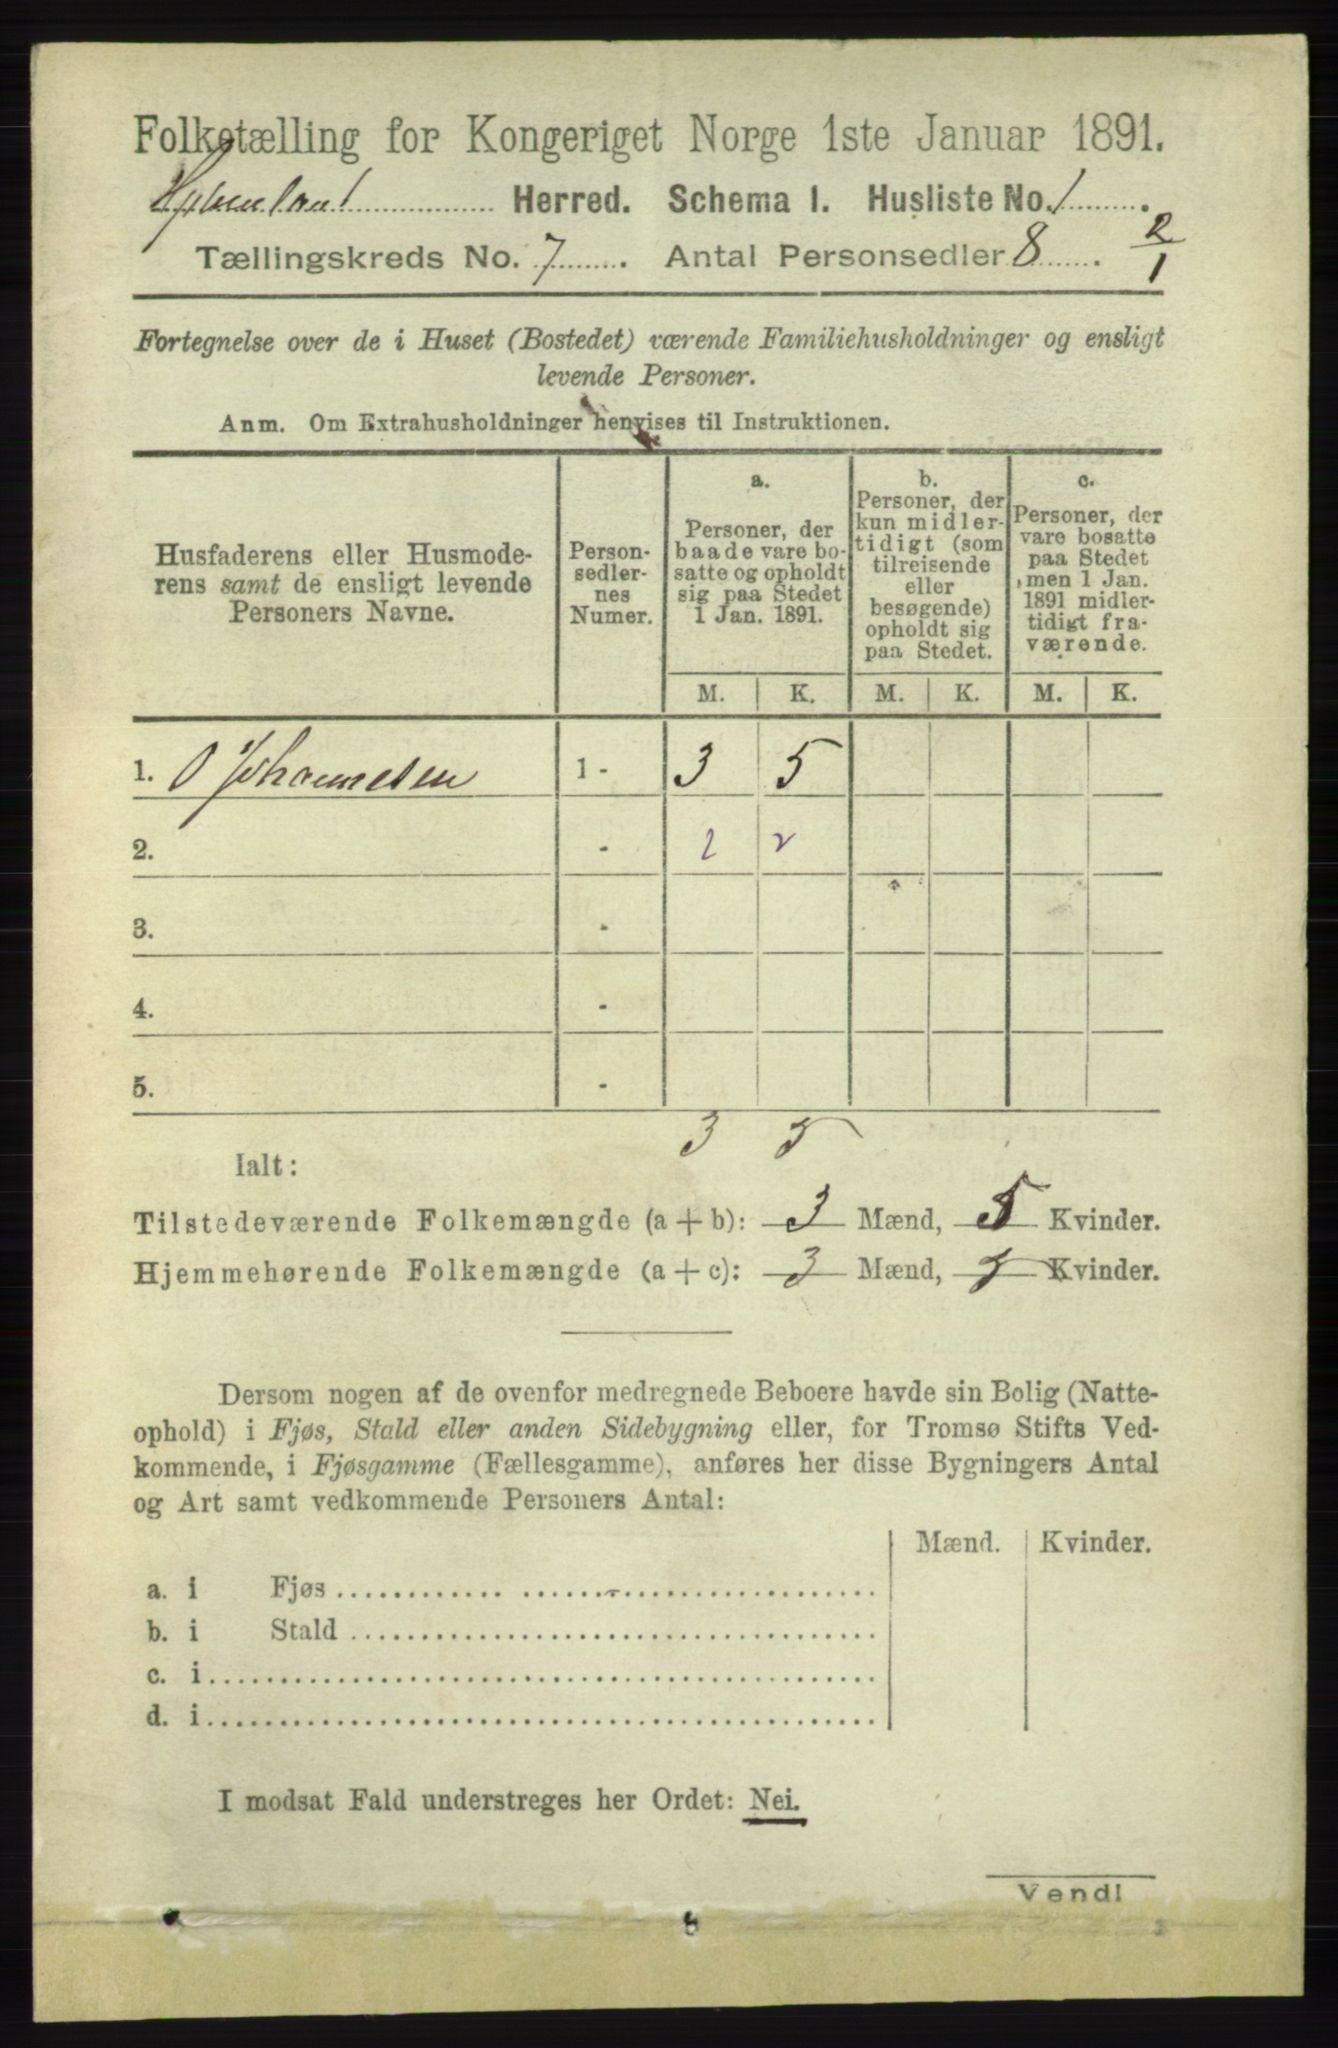 Folketælling for Kongeriget Norge 1ste Januar 1891.
Herred. Schema I. Husliste No. 1
Tællingskreds No. 7. Antal Personsedler 8. 2/1
Fortegnelse over de i Huset (Bostedet) værende Familiehusholdninger og ensligt
levende Personer.
Anm. Om Extrahusholdninger henvises til Instruktionen.
Husfaderens eller Husmode-
rens samt de ensligt levende
Personers Navne.
Person-
sedler-
nes
Numer.
a.
Personer, der
baade vare bo-
satte og opholdt
sig paa Stedet
1 Jan. 1891.
b.
Personer, der
kun midler-
tidigt (som
tilreisende
eller
besøgende)
opholdt sig
paa Stedet.
c.
Personer, der
vare bosatte
paa Stedet
, men 1 Jan.
1891 midler-
tidigt fra-
værende.
M. K. M. K. M. K.
1. O Johannesen 1 - 3 5
2. - 2 2
3. -
4. -
5. -
3 5
Ialt:
Tilstedeværende Folkemængde (a + b): 3 Mænd, 5 Kvinder.
Hjemmehørende Folkemængde (a + c): 3 Mænd, 5 Kvinder.
Dersom nogen af de ovenfor medregnede Beboere havde sin Bolig (Natte-
ophold) i Fjøs, Stald eller anden Sidebygning eller, for Tromsø Stifts Ved-
kommende, i Fjøsgamme (Fællesgamme), anføres her disse Bygningers Antal
og Art samt vedkommende Personers Antal:
Mænd. Kvinder.
a. i Fjøs
b. i Stald
c. i
d. i
I modsat Fald understreges her Ordet: Nei.
Vend!